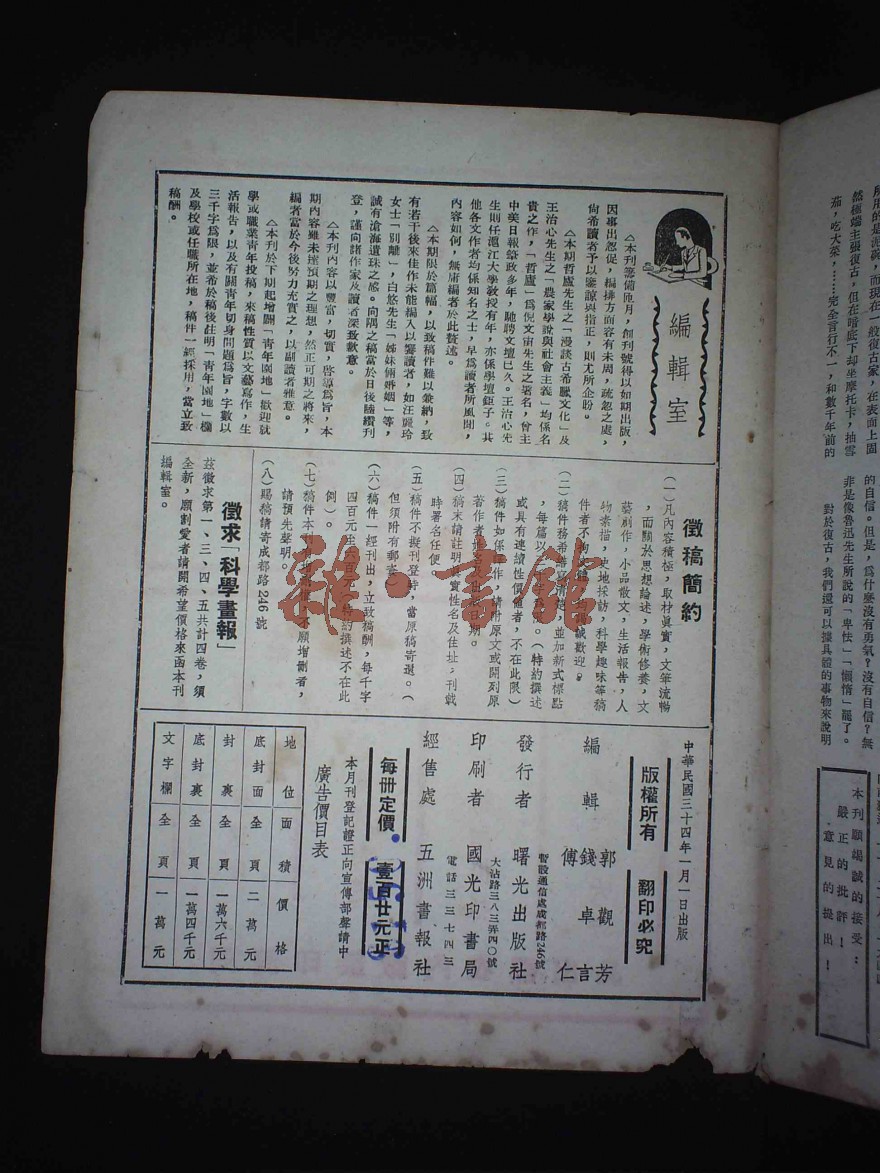 編輯室
△本刊籌備匝月，創刊號得以如期出版，
因事出怱促，編排方面容有未周，疏忽之處，
尙希讀者予以鑒諒與指正，則尤所企盼。
△本期哲廬先生之「漫談古希臘文化」及
王治心先生之「農家學說與社會主義」均係名
貴之作，「哲廬」爲倪文宙先生之署名，曾主
中美日報筆政多年，馳騁文壇已久。王治心先
生則任滬江大學敎授有年，亦係學壇鉅子。其
他各文作者均係知名之士，早爲讀者所風聞，
內容如何，無庸編者於此贅述。
△本期限於篇幅，以致稿件難以兼納，致
有若干後來佳作未能編入以饗讀者，如汪麗玲
女士「別離」，白悠先生「姊妹倆婚姻」等，
誠有滄海遺珠之感。向隅之稿當於日後隨續刊
登，謹向諸作家及讀者深致歉意。
△本刊內容以豐富，切實，啓導爲旨，本
期內容雖未達預期之理想，然正可期之將來，
編者當於今後努力充實之，以副讀者雅意。
△本刊於下期起增闢「靑年園地」歡迎就
學或職業靑年投稿，來稿性質以文藝寫作，生
活報告，以及有關靑年切身問題爲旨，字數以
三千字爲限，並希於稿後註明「靑年園地」欄
及學校或任職所在地，稿件一經採用，當立致
稿酬。
徵稿簡約
（一）凡內容積極，取材眞實，文筆流暢
，而關於思想論述，學術修養，文
藝創作，小品散文，生活報告，人
物素描，史地採訪，科學趣味等稿
件者不拘文體，均極誠歡迎。
（二）稿件務希繕寫淸楚，並加新式標點
，每篇以
（特約撰述
或具有連續性價值者，不在此限）
（三）稿件如係譯作，請附原文或開列原
著作者姓名及出版日期。
（四）稿末請註明眞實性名及住址，刊載
時署名任便
（五）稿件不擬刊登時，當原稿寄還。（
但須附有郵票）
（六）稿件一經刊出，立致稿酬，每千字
四百元至六百元（特約撰述不在此
例）。
（七）稿件本刊
不願增删者，
請預先聲明。
（八）賜稿請寄成都路246號
徵求「科學畫報」
茲徵求第一、三、四、五共計四卷，須
全新，願割愛者請開希望價格來函本刊
編輯室。
中華民國三十四年一月一日出版
版權所有 翻印必究
編輯 郭觀芳
錢卓言
傅仁
暫設通信處成都路246號
發行者 曙光出版社
大沽路三八三弄四〇號
印刷者 國光印書局
電話三三七四三
經售處 五洲書報社
每冊定價 壹百廿元正
本月刊登記證正向宣傳部聲請中
廣告價目表
地位 面積 價格
底封面 全頁 二萬元
封裏 全頁 一萬六千元
底封裏 全頁 一萬四千元
文字欄 全頁 一萬元
雜·書館
然極端主張復古，但在暗底下却坐摩托卡，抽雪
茄，吃大菜，……完全言行不一，和數千年前的
的自信。但是，爲什麼沒有勇氣？沒有自信？無
非是像魯迅先生所說的「卑怯」「懶惰」罷了。
對於復古，我們還可以據具體的事物來說明
本刊願竭誠的接受：
嚴正的批評！
意見的提出！